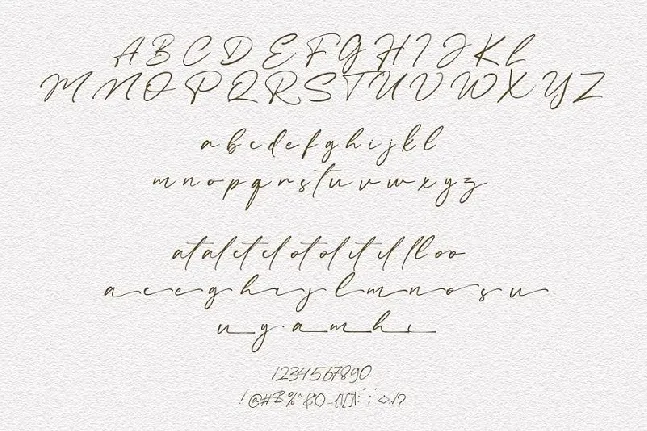 A B C D E F G H I J K L
M N O P Q R S T U V W X Y Z
a b c d e f g h i j k l
m n o p q r s t u v w x y z
at al et el ot ol it il ll oo
a c e g h i j l m n o s u
u g a m h s
1234567890